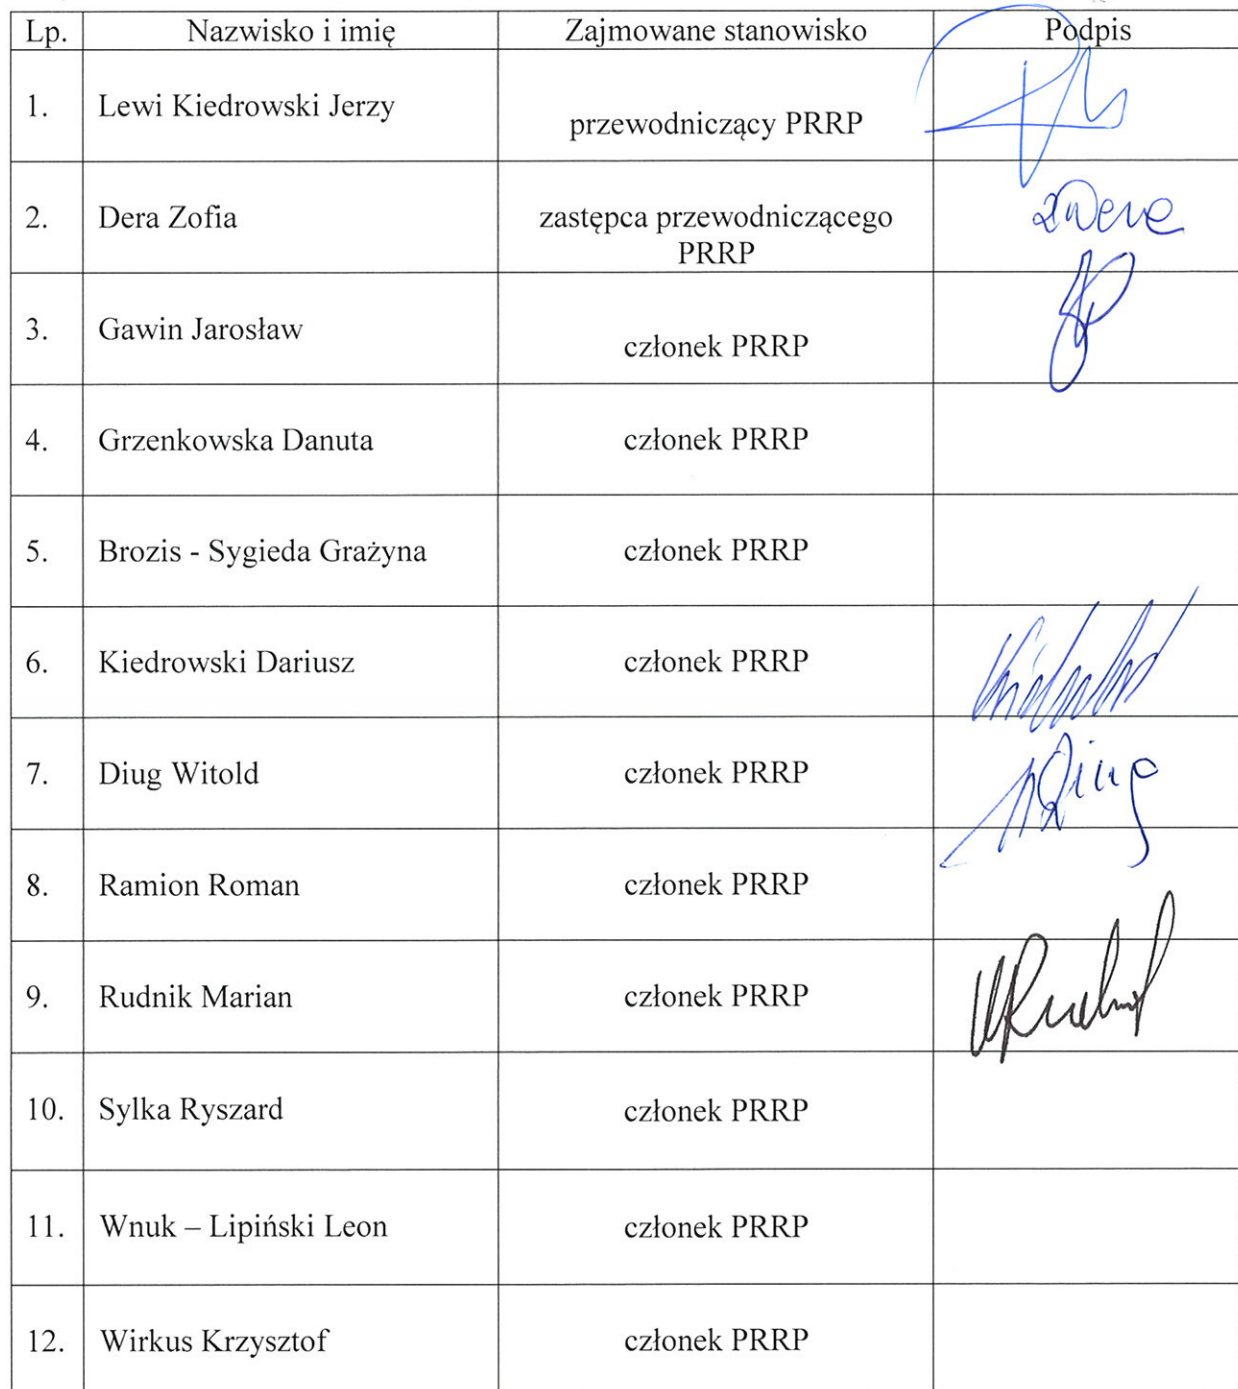 Lp. Nazwisko i imię Zajmowane stanowisko Podpis
1. Lewi Kiedrowski Jerzy przewodniczący PRRP
2. Dera Zofia zastępca przewodniczącego PRRP ZDera
3. Gawin Jarosław członek PRRP
4. Grzenkowska Danuta członek PRRP
5. Brozis - Sygieda Grażyna członek PRRP
6. Kiedrowski Dariusz członek PRRP
7. Diug Witold członek PRRP WDiug
8. Ramion Roman członek PRRP
9. Rudnik Marian członek PRRP MRudnik
10. Sylka Ryszard członek PRRP
11. Wnuk – Lipiński Leon członek PRRP
12. Wirkus Krzysztof członek PRRP